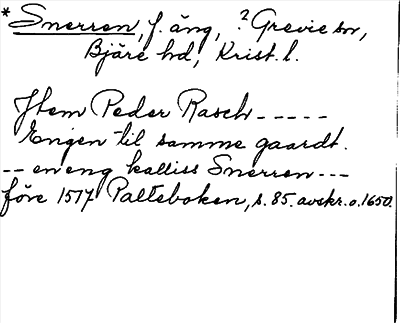 * Snerren, f. äng, ? Grevie sn,
Bjäre hd, Krist. l.
Jtem Peder Rasch -----
Engen til samme gaardt.
-- en eng kalliss Snerren ---
före 1517 Palteboken, s. 85. avskr. o. 1650.